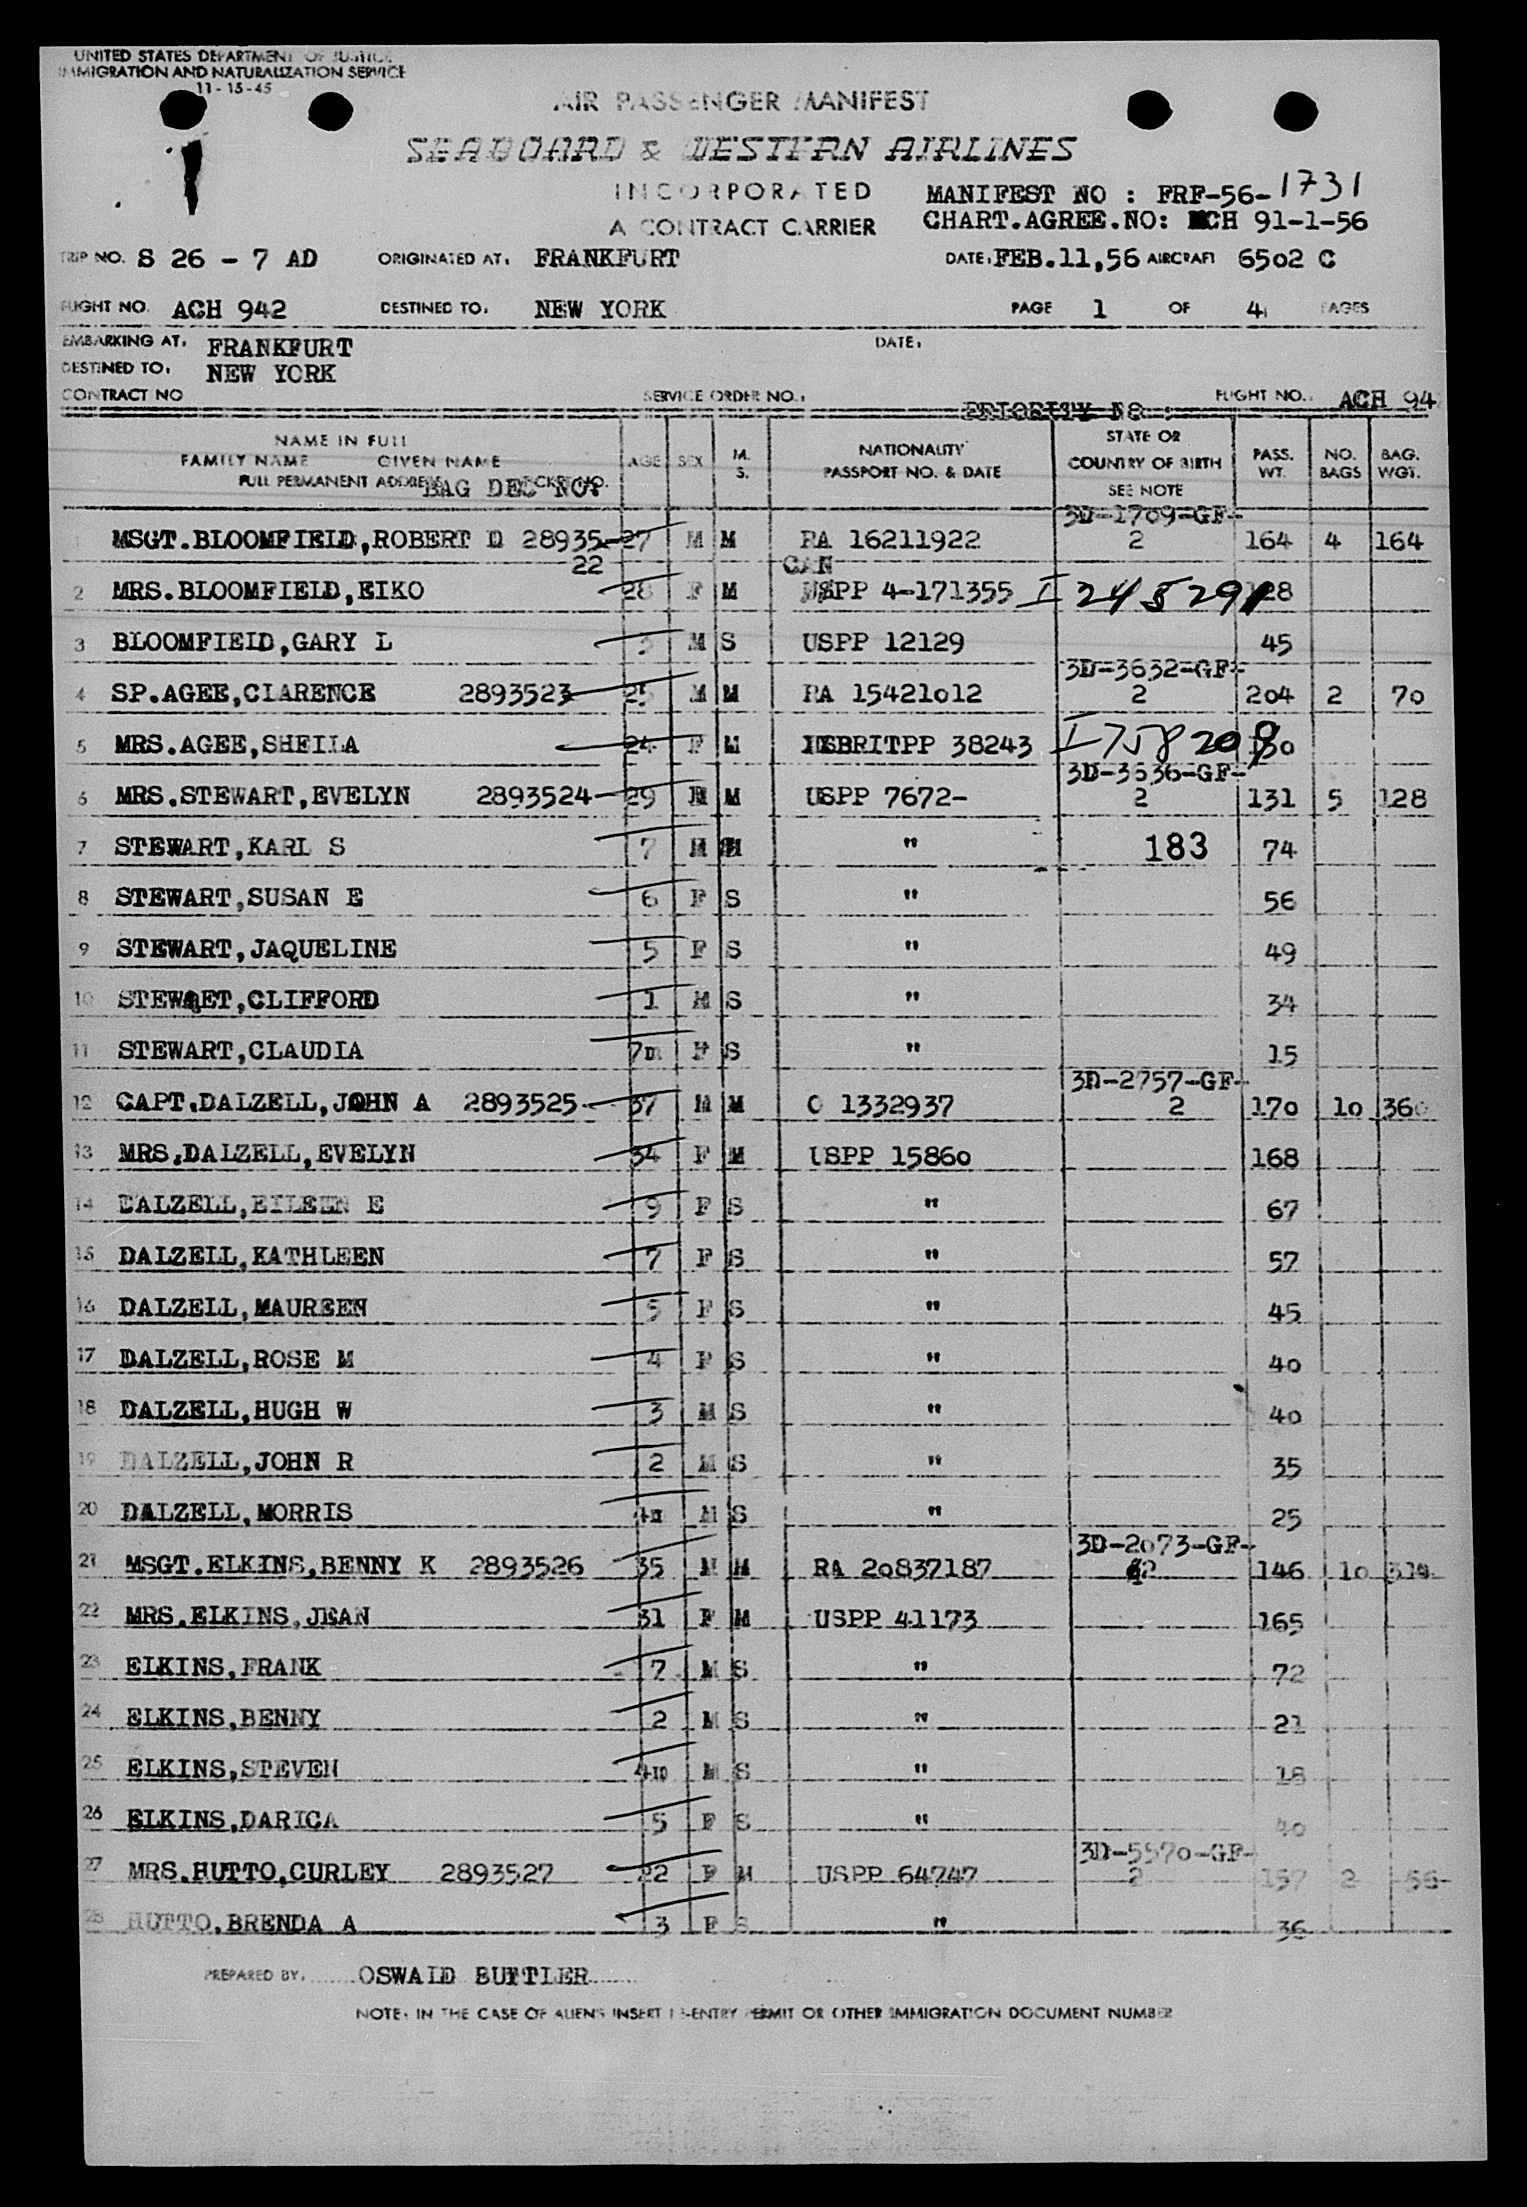 UNITED STATES DEPARTMENT OF JUSTICE
IMMIGRATION AND NATURALIZATION SERVICE
11-15-45
AIR PASSENGER MANIFEST
SEABOARD & WESTERN AIRLINES
INCORPORATED
A CONTRACT CARRIER
MANIFEST NO : FRF-56-1731
CHART.AGREE.NO: MCH 91-1-56
TRIP NO. S 26 - 7 AD ORIGINATED AT: FRANKFURT DATE: FEB.11,56 AIRCRAFT 6502 C
FLIGHT NO. ACH 942 DESTINED TO: NEW YORK PAGE 1 OF 4 PAGES
EMBARKING AT: FRANKFURT DATE:
DESTINED TO: NEW YORK
CONTRACT NO SERVICE ORDER NO.: PRIORITY NO : FLIGHT NO. ACH 94
NAME IN FULL
FAMILY NAME GIVEN NAME
FULL PERMANENT ADDRESS BAG DEC NO.
AGE SEX M. S. NATIONALITY PASSPORT NO. & DATE STATE OR COUNTRY OF BIRTH SEE NOTE PASS. WT. NO. BAGS BAG. WGT.
3D-1709-GF-
1 MSGT.BLOOMFIELD,ROBERT D 28935 27 M M RA 16211922 2 164 4 164
22 CAN
2 MRS.BLOOMFIELD,EIKO 28 F M USPP 4-171355 I 245291 128
3 BLOOMFIELD,GARY L M S USPP 12129 45
3D-3632-GF-
4 SP.AGEE,CLARENCE 2893523 25 M M RA 15421012 2 204 2 70
5 MRS.AGEE,SHEILA 24 F M BRITPP 38243 I 758209 130
3D-3636-GF-
6 MRS.STEWART,EVELYN 2893524 29 M USPP 7672- 2 131 5 128
7 STEWART,KARL S 7 M " 183 74
8 STEWART,SUSAN E 6 F S " 56
9 STEWART,JAQUELINE 5 F S " 49
10 STEWAET,CLIFFORD 1 M S " 34
11 STEWART,CLAUDIA 7m F S " 15
3D-2757-GF-
12 CAPT.DALZELL,JOHN A 2893525 37 M M O 1332937 2 170 10 360
13 MRS.DALZELL,EVELYN 34 F M USPP 15860 168
14 DALZELL,EILEEN E 9 F S " 67
15 DALZELL,KATHLEEN 7 F S " 57
16 DALZELL,MAUREEN 5 F S " 45
17 DALZELL,ROSE M 4 F S " 40
18 DALZELL,HUGH W 3 M S " 40
19 DALZELL,JOHN R 2 M S " 35
20 DALZELL,MORRIS 4m M S " 25
3D-2073-GF-
21 MSGT.ELKINS,BENNY K 2893526 35 M M RA 20837187 2 146 10 314
22 MRS.ELKINS,JEAN 31 F M USPP 41173 165
23 ELKINS,FRANK 7 M S " 72
24 ELKINS,BENNY 2 M S " 21
25 ELKINS,STEVEN 4m M S " 18
26 ELKINS,DARICA 5 F S " 40
3D-5570-GF-
27 MRS.HUTTO,CURLEY 2893527 22 F M USPP 64747 2 157 2 56
28 HUTTO,BRENDA A 3 F S " 36
PREPARED BY: OSWALD BUTTLER
NOTE: IN THE CASE OF ALIENS INSERT RE-ENTRY PERMIT OR OTHER IMMIGRATION DOCUMENT NUMBER